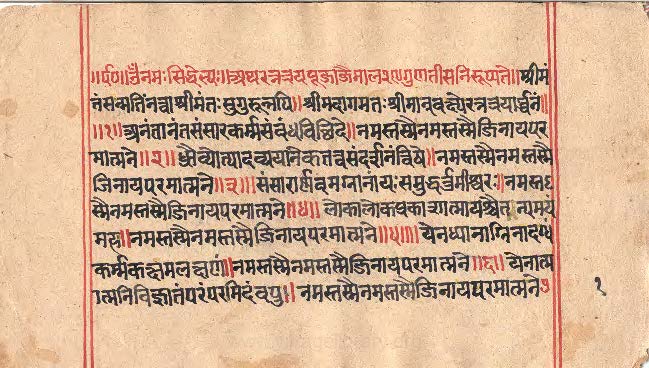 ॥र्ए०॥ ॐनमः सिद्धेभ्यः॥ अथ रत्नत्रयपूजाजैमाल २९ गुणतीसनिरूप्यते॥ श्रीमं
तं सन्मतिं नत्वा श्रीमंतः सुगुरूनपि॥ श्रीमदागमतः श्रीमान् वक्ष्ये रत्नत्रयार्च्चनं॥
॥१॥ अनंतानंतसंसारकर्म्मसंबंधविछिदे॥ नमस्तस्मै नमस्तस्मै जिनायपर
मात्मने॥२॥ ध्रौव्योत्पादव्यय नमस्तस्मै नमस्तस्मै
जिनायपरमात्मने॥३॥ संसारार्णवमग्नानां यः समुद्धर्तुमीश्वरः॥ नमस्त
स्मै नमस्तस्मै जिनायपरमात्मने॥४॥ लोकालोकप्रकाशात्मा
नमस्तस्मै नमस्तस्मै जिनायपरमात्मने॥५॥ येनध्यानाग्निनादग्धं
कर्म्मकक्षमलक्षणं॥ नमस्तस्मै नमस्तस्मै जिनायपरमात्मने॥६॥ येनात्म
त्मनिविज्ञातं परं परमिदं वपु॥ नमस्तस्मै नमस्तस्मै जिनायपरमात्मने७
१